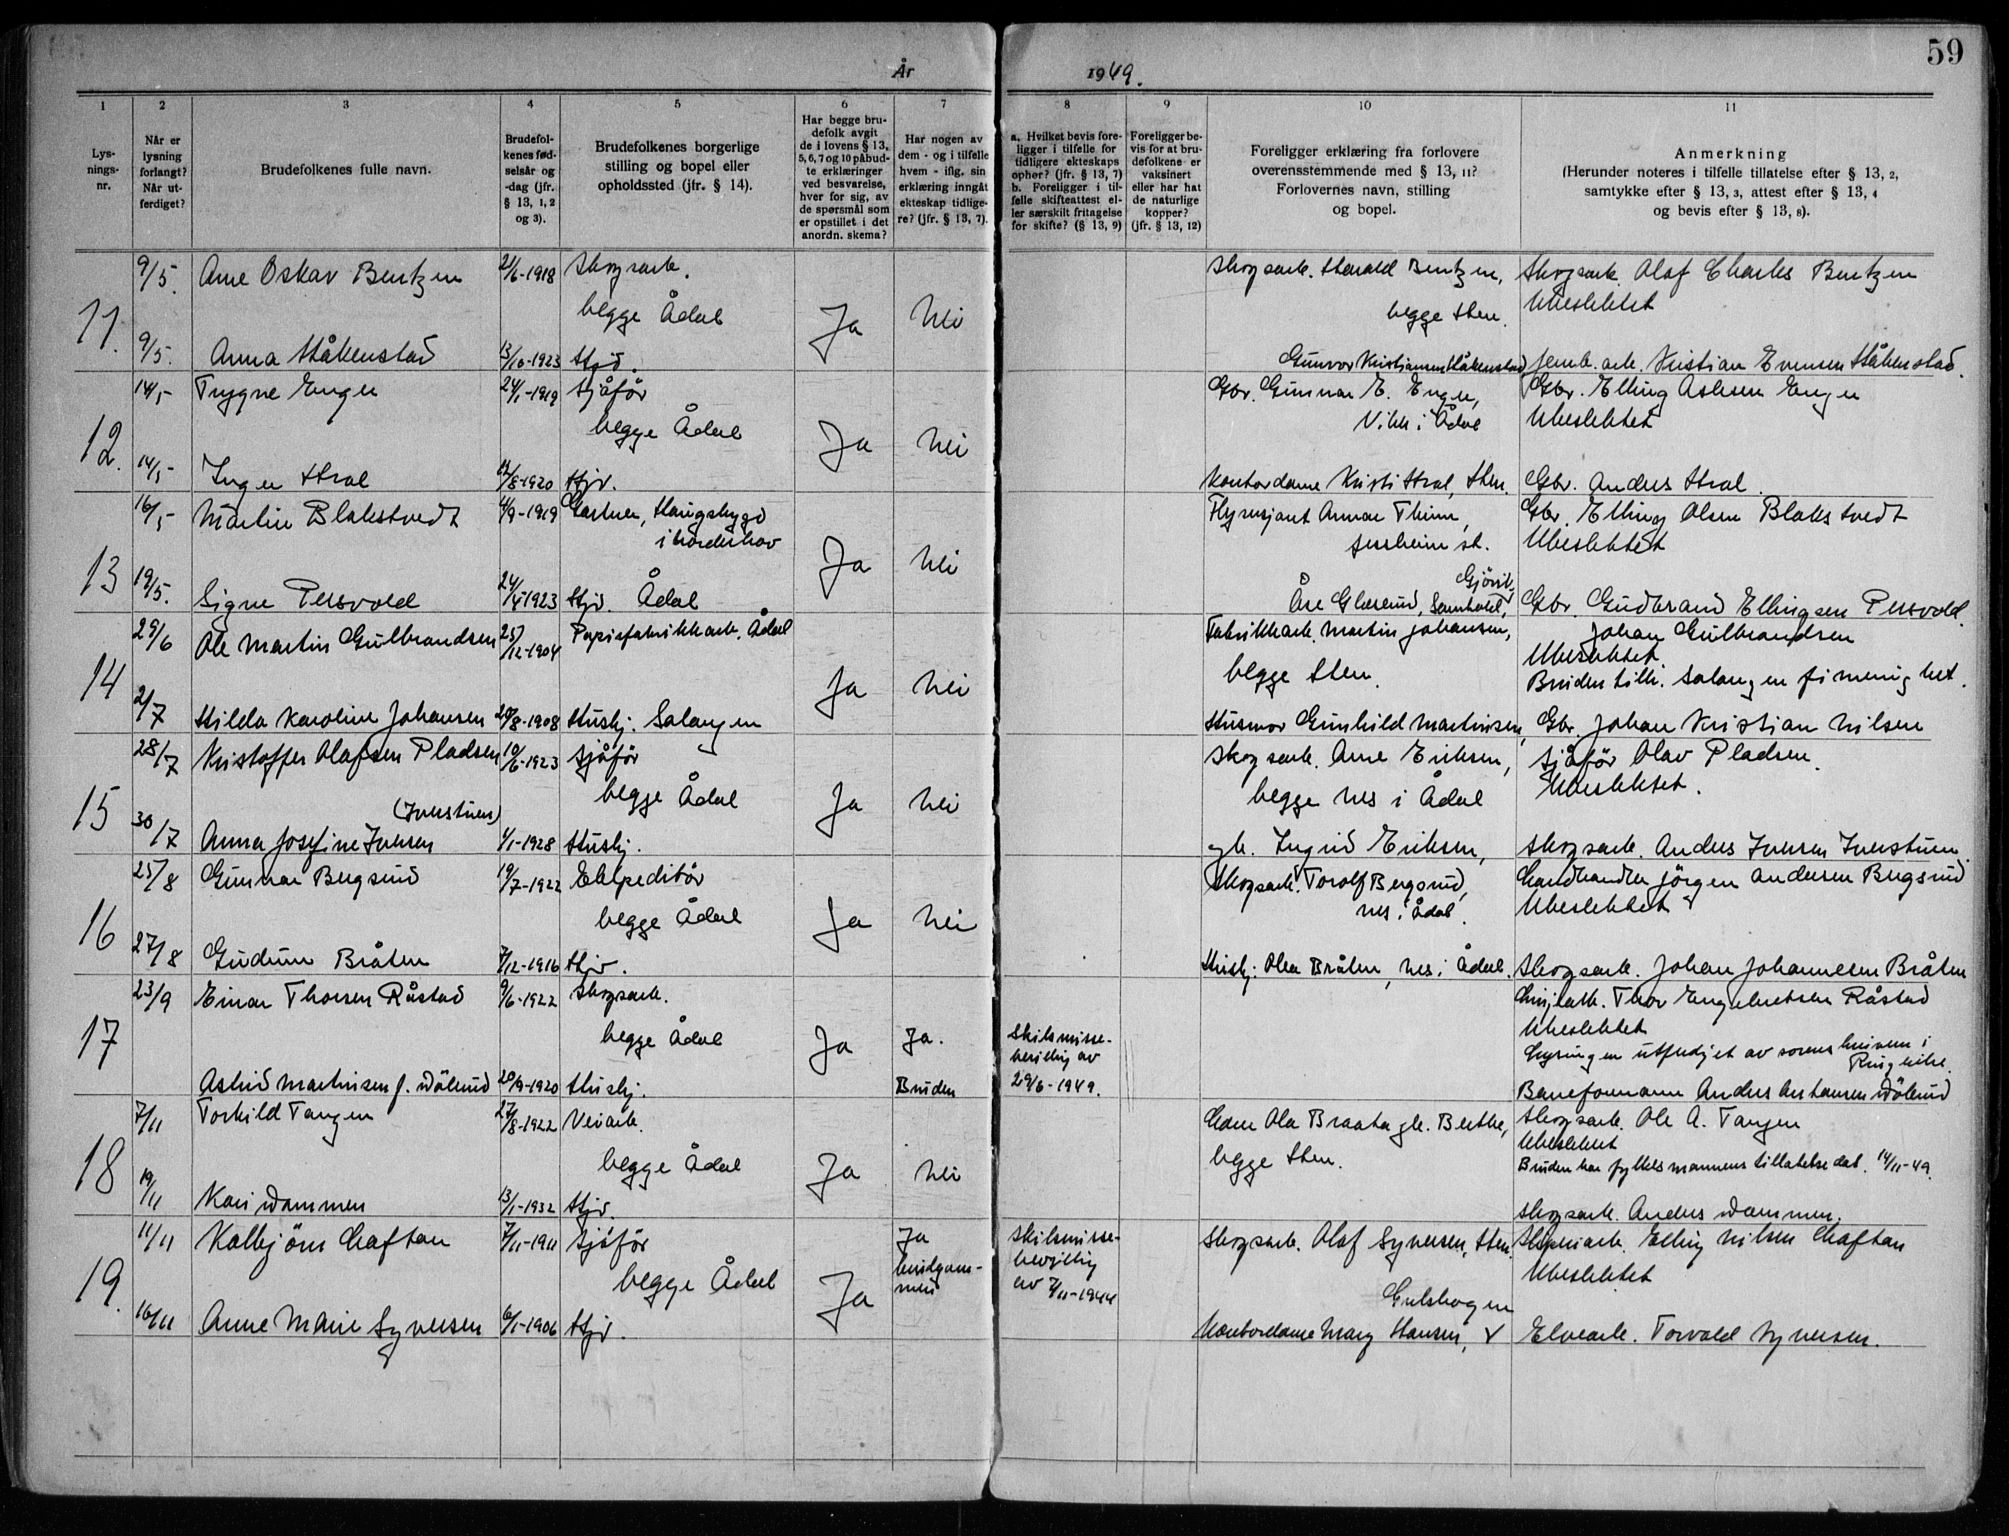 59
År 1949.
1 2 3 4 5 6 7 8 9 10 11
Lys-
nings-
nr.
Når er
lysning
forlangt?
Når ut-
ferdiget?
Brudefolkenes fulle navn.
Brudefol-
kenes fød-
selsår og
-dag (jfr.
§ 13, 1, 2
og 3).
Brudefolkenes borgerlige
stilling og bopel eller
opholdssted (jfr. § 14).
Har begge bru-
defolk avgit
de i lovens § 13,
5, 6, 7 og 10 påbud-
te erklæringer
ved besvarelse,
hver for sig, av
de spørsmål som
er opstillet i det
anordn. skema?
Har nogen av
dem - og i tilfelle
hvem - iflg. sin
erklæring inngåt
ekteskap tidlige-
re? (jfr. § 13, 7).
a. Hvilket bevis fore-
ligger i tilfelle for
tidligere ekteskaps
ophør? (jfr. § 13, 7)
b. Foreligger i til-
felle skifteattest el-
ler særskilt fritagelse
for skifte? (§ 13, 9)
Foreligger be-
vis for at bru-
defolkene er
vaksinert
eller har hat
de naturlige
kopper?
(jfr. § 13, 12)
Foreligger erklæring fra forlovere
overensstemmende med § 13, 11?
Forlovernes navn, stilling
og bopel.
Anmerkning
(Herunder noteres i tilfelle tillatelse efter § 13, 2,
samtykke efter § 13, 3, attest efter § 13, 4
og bevis efter § 13, 8).
9/5. Arne Oskar Bentzen 21/6-1918 Skogsarb. Skogsarb. Harald Bentzen, Skogsarb. Olaf Charles Bentzen
11. begge Ådal Ja Nei begge Hen. Ubeslektet
9/5. Anna Håkenstad 13/10-1923 Hjv. Gunvor Kristiansen Håkenstad Jernb. arb. Kristian Evensen Håkenstad.
14/5 Trygve Enger 24/1-1919 Sjåför Gbr. Gunnar E. Enger, Gbr. Elling Aslesen Enger
12. begge Ådal Ja Nei Viker i Ådal Ubeslektet
14/5 Inger Hval 12/8-1920 Hjv. Kontordame Kristi Hval, Hen. Gbr. Anders Hval.
16/5 Martin Blakstvedt 4/9-1919 Gartner, Haugsbygd Flysersjant Annar Thim, Gbr. Elling Olsen Blakstvedt
i Norderhov Jessheim st. Ubeslektet
13 Ja Nei
19/5. Signe Persvold 24/4-1923 Hjv. Ådal Åse Glaserud, Gjövik, Gbr. Gudbrand Ellingsen Persvold.
29/6 Ole Martin Gulbrandsen 25/12-1904 Papirfabrikkarb. Ådal Fabrikkarb. Martin Johansen, Johan Gulbrandsen
14 Ja Nei begge Hen. Ubeslektet.
Bruden tilh. Salangen frimenighet.
2/7 Hilda Karoline Johansen 20/8-1908 Hushj. Salangen Husmor Gunhild Martinsen, Gbr. Johan Kristian Nilsen
28/7 Kristoffer Olafsen Pladsen 10/6-1923 Sjåför Skogsarb. Arne Eriksen, Sjåför Olav Pladsen.
15 begge Ådal Ja Nei begge Nes i Ådal Ubeslektet.
(Iverstuen)
30/7 Anna Josefine Iversen 1/1-1928 Hushj. gk. Ingrid Eriksen, Skogsarb. Anders Iversen Iverstuen.
25/8 Gunnar Bergsund 19/7-1922 Ekspeditör Skogsarb. Torolf Bergsund, Landhandler Jörgen Andersen Bergsund
16 begge Ådal Ja Nei Nes i Ådal. Ubeslektet
27/8 Gudrun Bråten 7/12-1916 Hjv. Hushj. Olea Bråten, Nes i Ådal. Skogsarb. Johan Johannesen Bråten
23/9 Einar Thorsen Råstad 9/6-1922 Skogsarb. Thor Engebretsen Råstad
17 begge Ådal Ja Ja. Skilsmisse- Ubeslektet
bevilling av Lysningen utferdiget av sorenskriveren i
Ringerike.
Astrid Martinsen f. Dölerud 20/9-1920 Hushj. Bruden 29/6-1949. Baneformann Anders Dölerud
7/11 Torkild Tangen 27/8-1922 Veiarb. Ola Braata gk. Berthe, Skogsarb. Ole A. Tangen
18 begge Ådal Ja Nei begge Hen. Ubeslektet
Bruden har fylkesmannens tillatelse dat. 14/11-49.
19/11 Kari Dammen 13/1-1932 Hjv. Skogsarb. Anders Dammen.
11/11 Kolbjörn Laftan 7/11-1911 Sjåför Ja Skilsmisse- Skogsarb. Olaf Syversen, Hen. Elling Nilsen Laftan
19. begge Ådal Ja brudgom- bevilling Ubeslektet
men av 7/11-1944 Gulskogen
16/11 Anne Marie Syversen 6/1-1906 Hjv. Kontordame Mary Hansen, v Elvearb. Torvald Syversen.